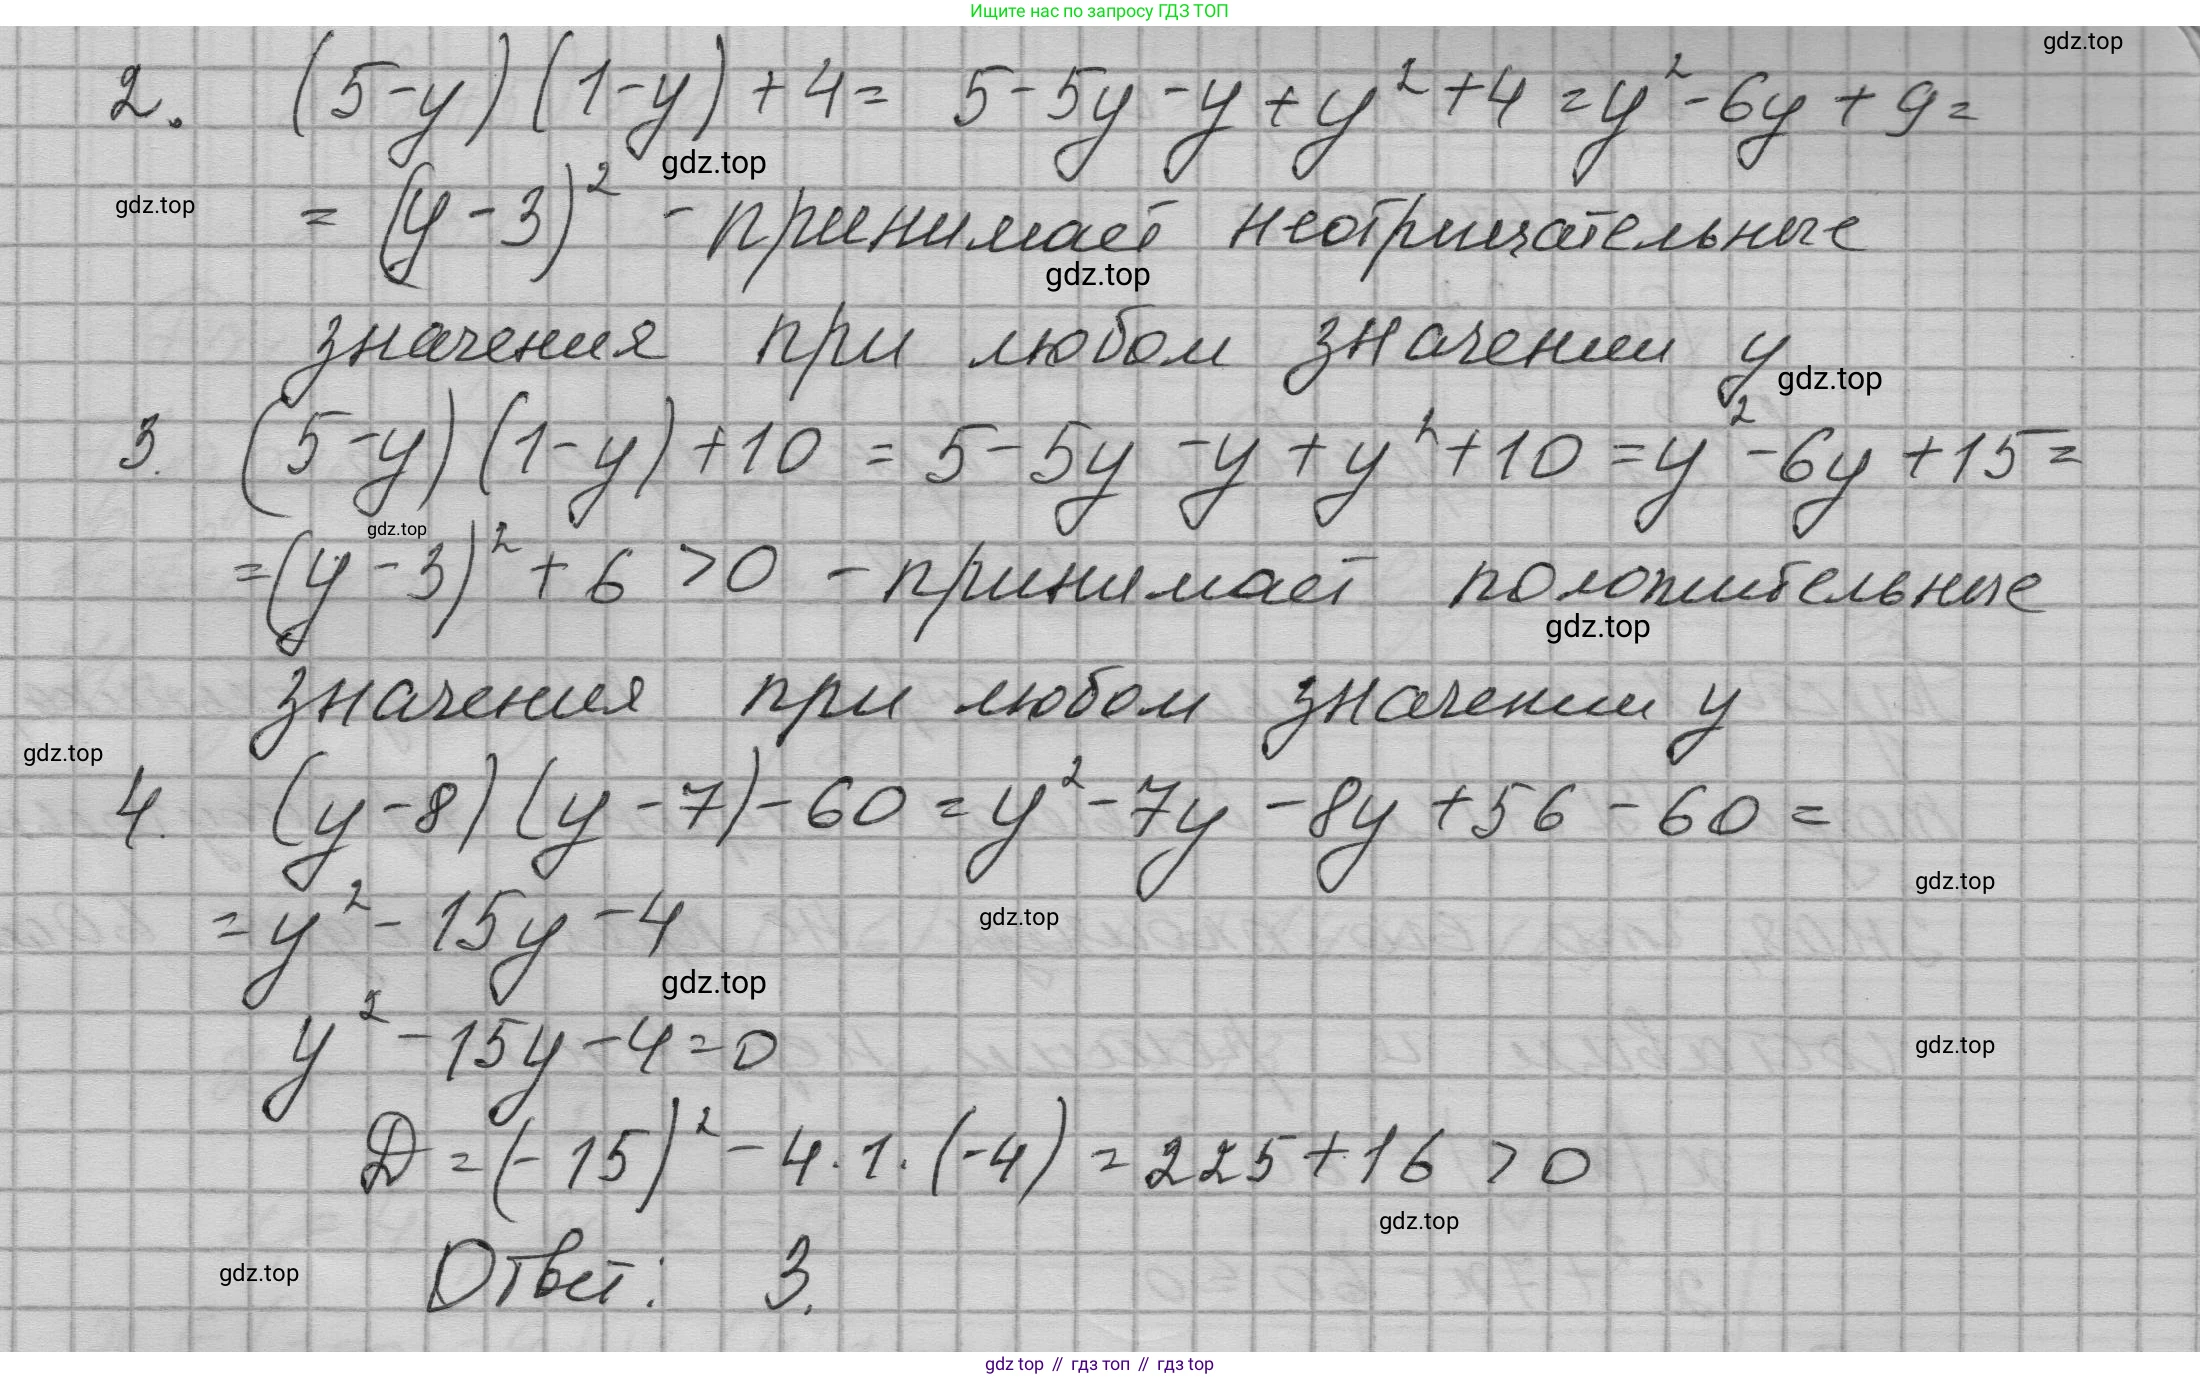 Ищите нас по запросу ГДЗ ТОП
gdz.top
2. (5-y)(1-y)+4= 5-5y-y+y²+4=y²-6y+9=
gdz.top
gdz.top
=(y-3)² - принимает неотрицательные
gdz.top
значения при любом значении y
gdz.top
3. (5-y)(1-y)+10=5-5y-y+y²+10=y²-6y+15=
gdz.top
=(y-3)²+6>0 - принимает положительные
gdz.top
значения при любом значении y
gdz.top
4. (y-8)(y-7)-60=y²-7y-8y+56-60=
gdz.top
=y²-15y-4
gdz.top
gdz.top
y²-15y-4=0
gdz.top
D=(-15)²-4·1·(-4)=225+16>0
gdz.top
Ответ: 3.
gdz.top
gdz top // гдз топ // гдз top